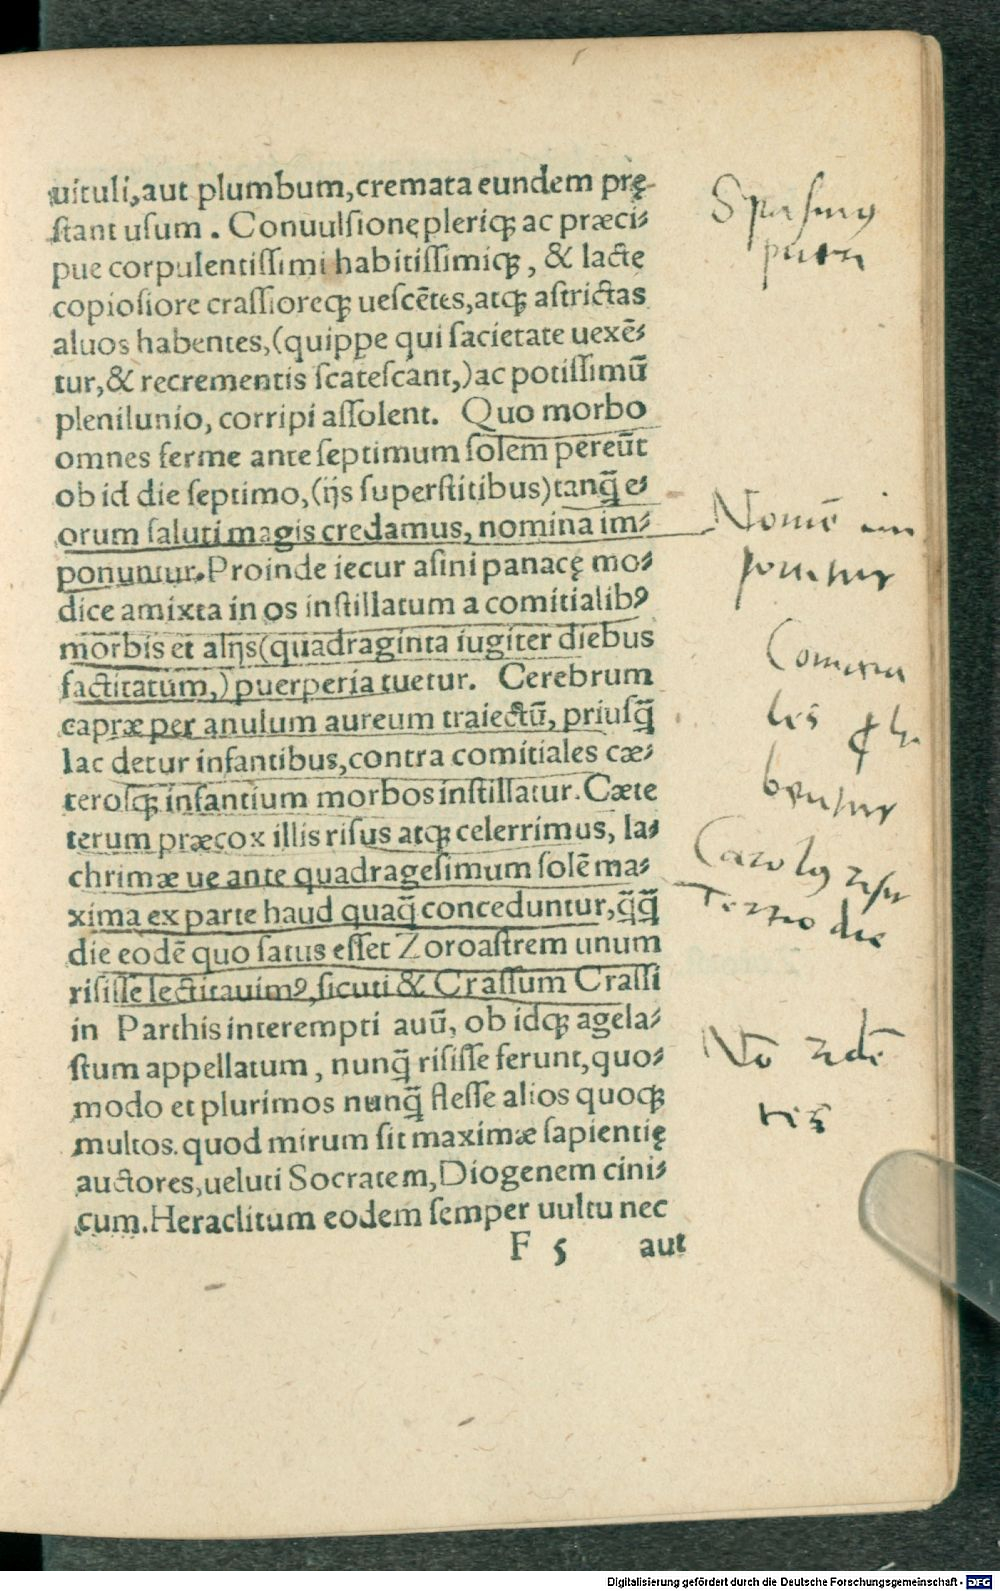 uituli,aut plumbum,cremata eundem prę-
stant usum. Conuulsionę pleriqꝫ ac præci-
pue corpulentissimi habitissimiqꝫ, & lacte
copiosiore crassioreqꝫ uescētes,atqꝫ astrictas
aluos habentes,(quippe qui sacietate uexē-
tur,& recrementis scatescant,)ac potissimū
plenilunio, corripi assolent. Quo morbo
omnes ferme ante septimum solem pereūt
ob id die septimo,(ijs superstitibus)tanq̃ e-
orum saluti magis credamus, nomina im-
ponuntur.Proinde iecur asini panacę mo-
dice amixta in os instillatum a comitialibꝰ
morbis et alijs(quadraginta iugiter diebus
factitatum,)puerperia tuetur. Cerebrum
capræ per anulum aureum traiectū, priusq̃
lac detur infantibus,contra comitiales cæ-
terosqꝫ infantium morbos instillatur.Cæte
terum præcox illis risus atqꝫ celerrimus, la-
chrimæ ue ante quadragesimum solē ma-
xima ex parte haud quaq̃ conceduntur,q̃q̃
die eodē quo satus esset Zoroastrem unum
risisse lectitauimꝰ,sicuti & Crassum Crassi
in Parthis interempti auū, ob idqꝫ agela-
stum appellatum, nunq̃ risisse ferunt,quo-
modo et plurimos nunq̃ flesse alios quoqꝫ
multos.quod mirum sit maximæ sapientię
auctores,ueluti Socratem,Diogenem cini-
cum.Heraclitum eodem semper uultu nec
F 5 aut
Spasmꝰ
Nomē im
ponitur
Comitia
les
Nō ridē
tes
Digitalisierung gefördert durch die Deutsche Forschungsgemeinschaft - DFG